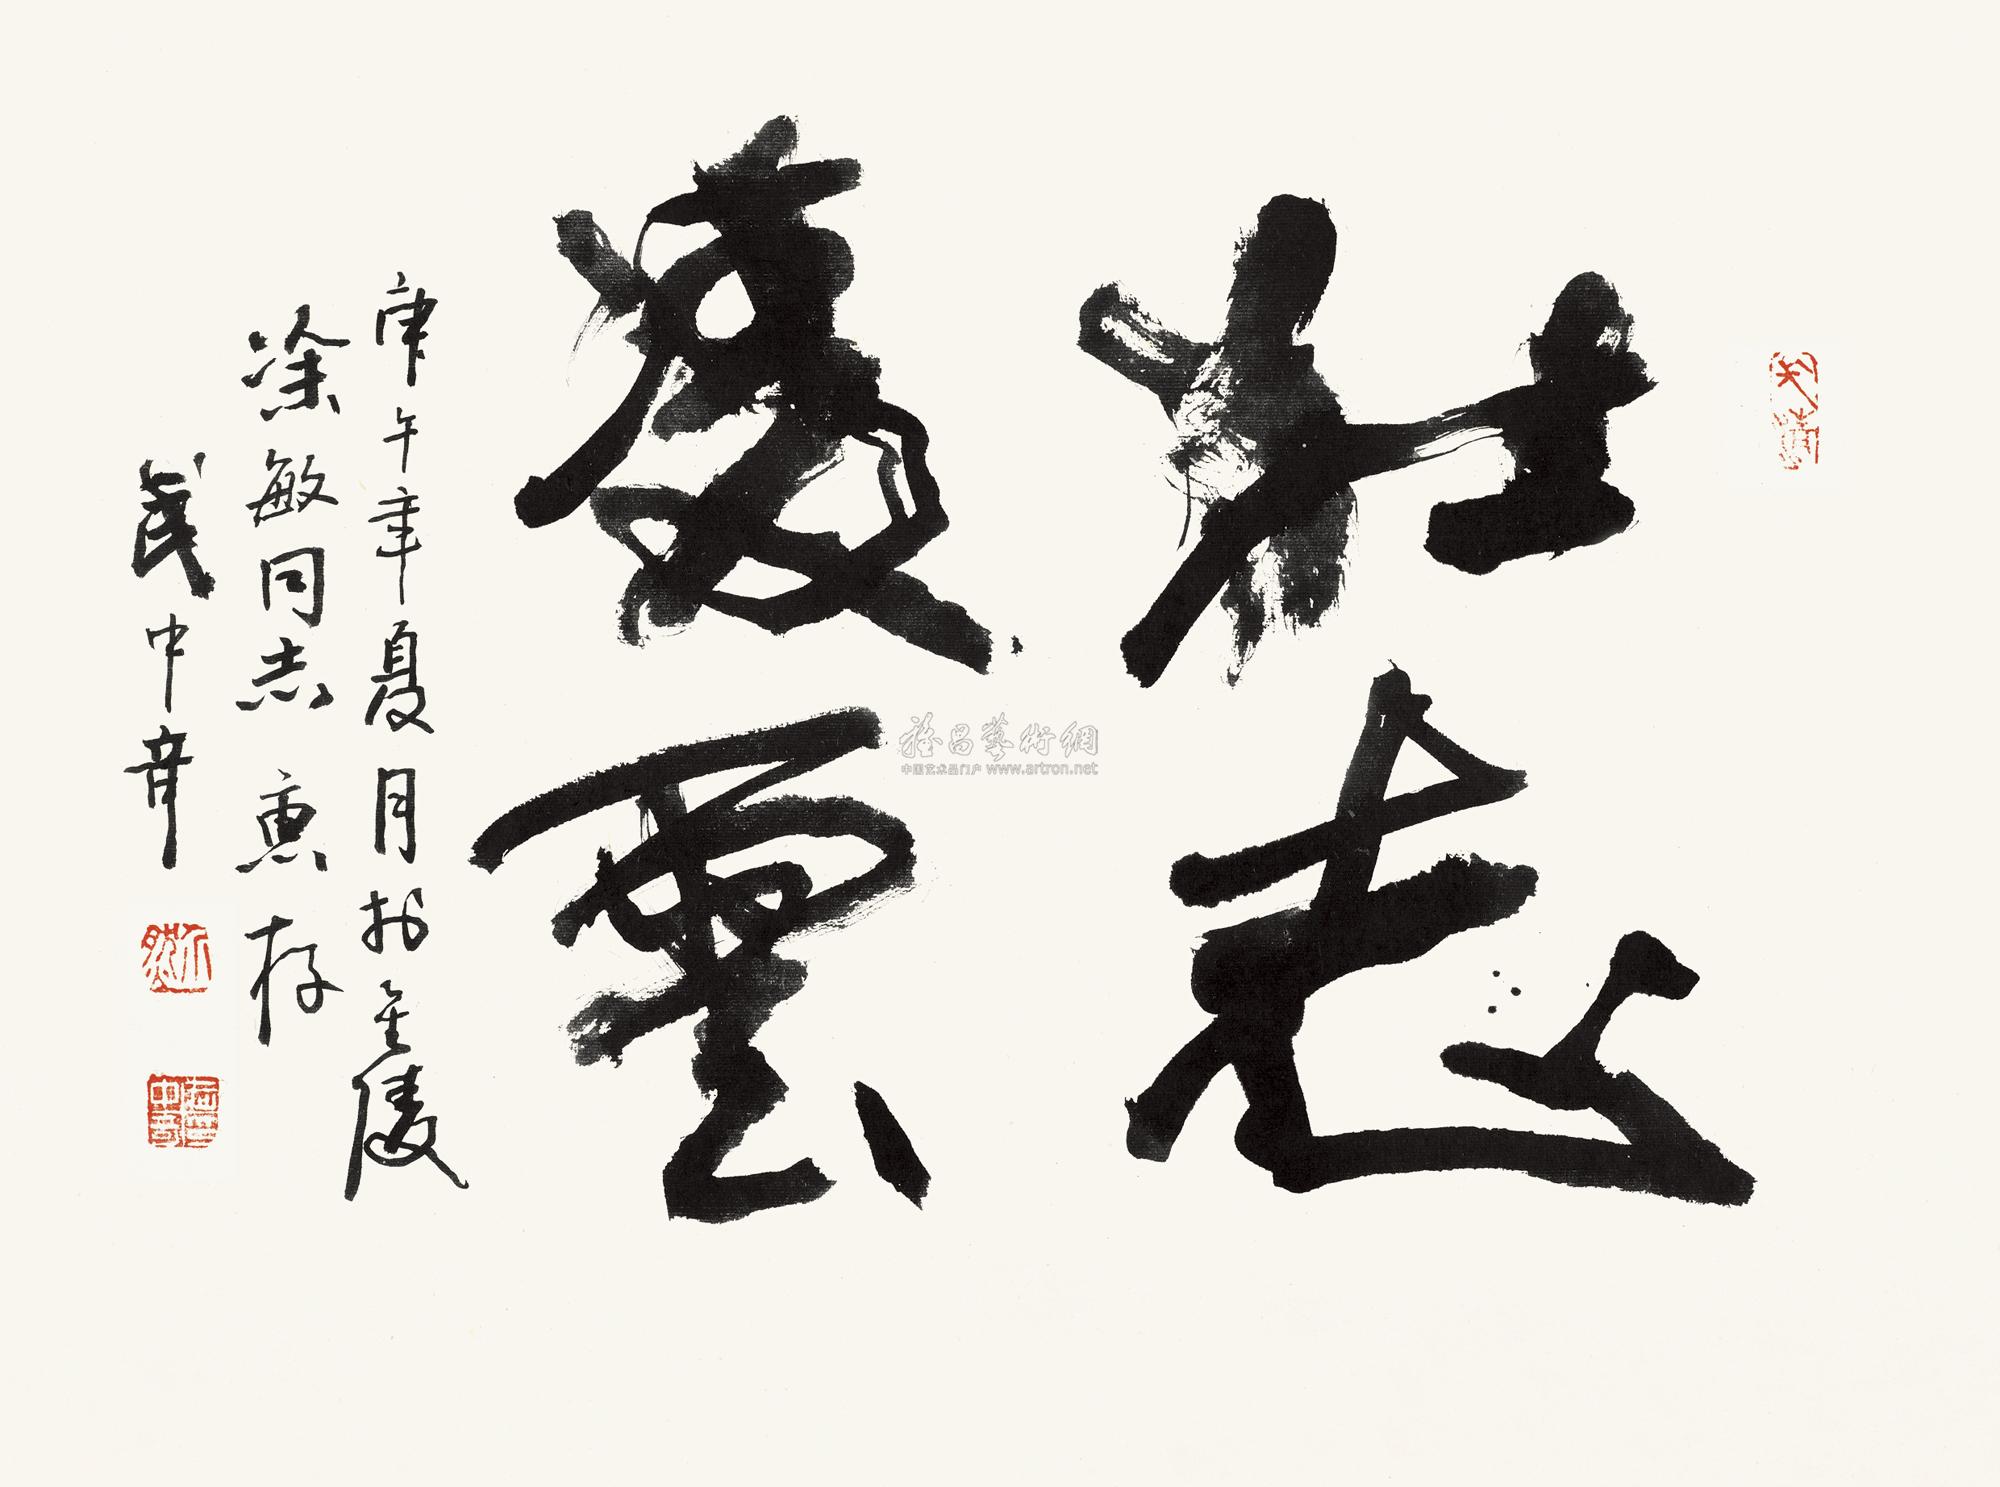 壮志
凌雲
庚午年夏月於金陵
涂敏同志惠存
武中奇
雅昌藝術網
中国艺术品门户 www.artron.net